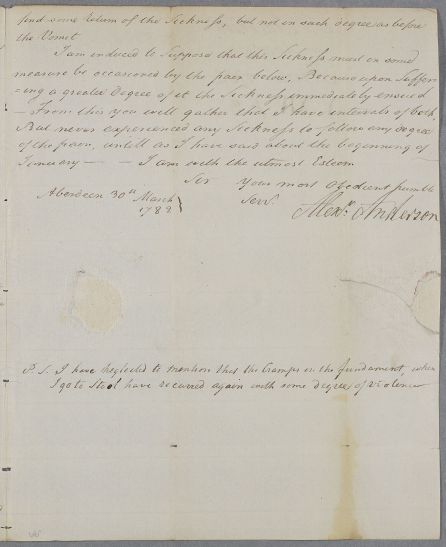 find some return of the Sickness, but not in such degree as before
the Vomit
I am induced to Suppose that this Sickness must in some
measure be occasioned by the pain below, Because upon Suffer-
=ing a greater degree of it the Sickness immediately ensued
— From this you will gather that I have intervals of both,
But never experienced any Sickness to follow any degree
of the pain, untill as I have said about the beginning of
January — — I am with the utmost Esteem
Sir Your most Obedient humble
Aberdeen 30th March Servt
1782 Alexr Anderson
P. S. I have neglected to mention that the Cramps in the fundament, when
I go to Stool have recurred again with some degree of violence